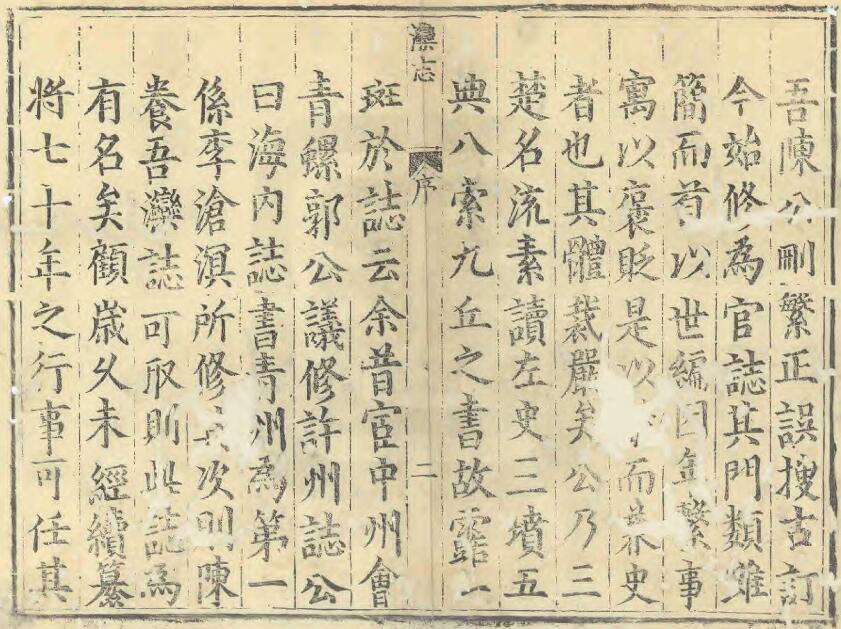 吾陳公刪繁正誤搜古訂
今始修為官誌其門類雖
簡而首以世編因年繫事
寓以褒貶是以而兼史
者也其體裁嚴矣公乃三
楚名流素讀左史三墳五
典八索九丘之書故露一
灤志 序 二
斑於誌云余昔宦中州會
青螺郭公議修許州誌公
曰海內誌書青州為第一
係李滄溟所修其次則陳
養吾灤誌可取則此誌為
有名矣顧歲久未經續纂
將七十年之行事可任其